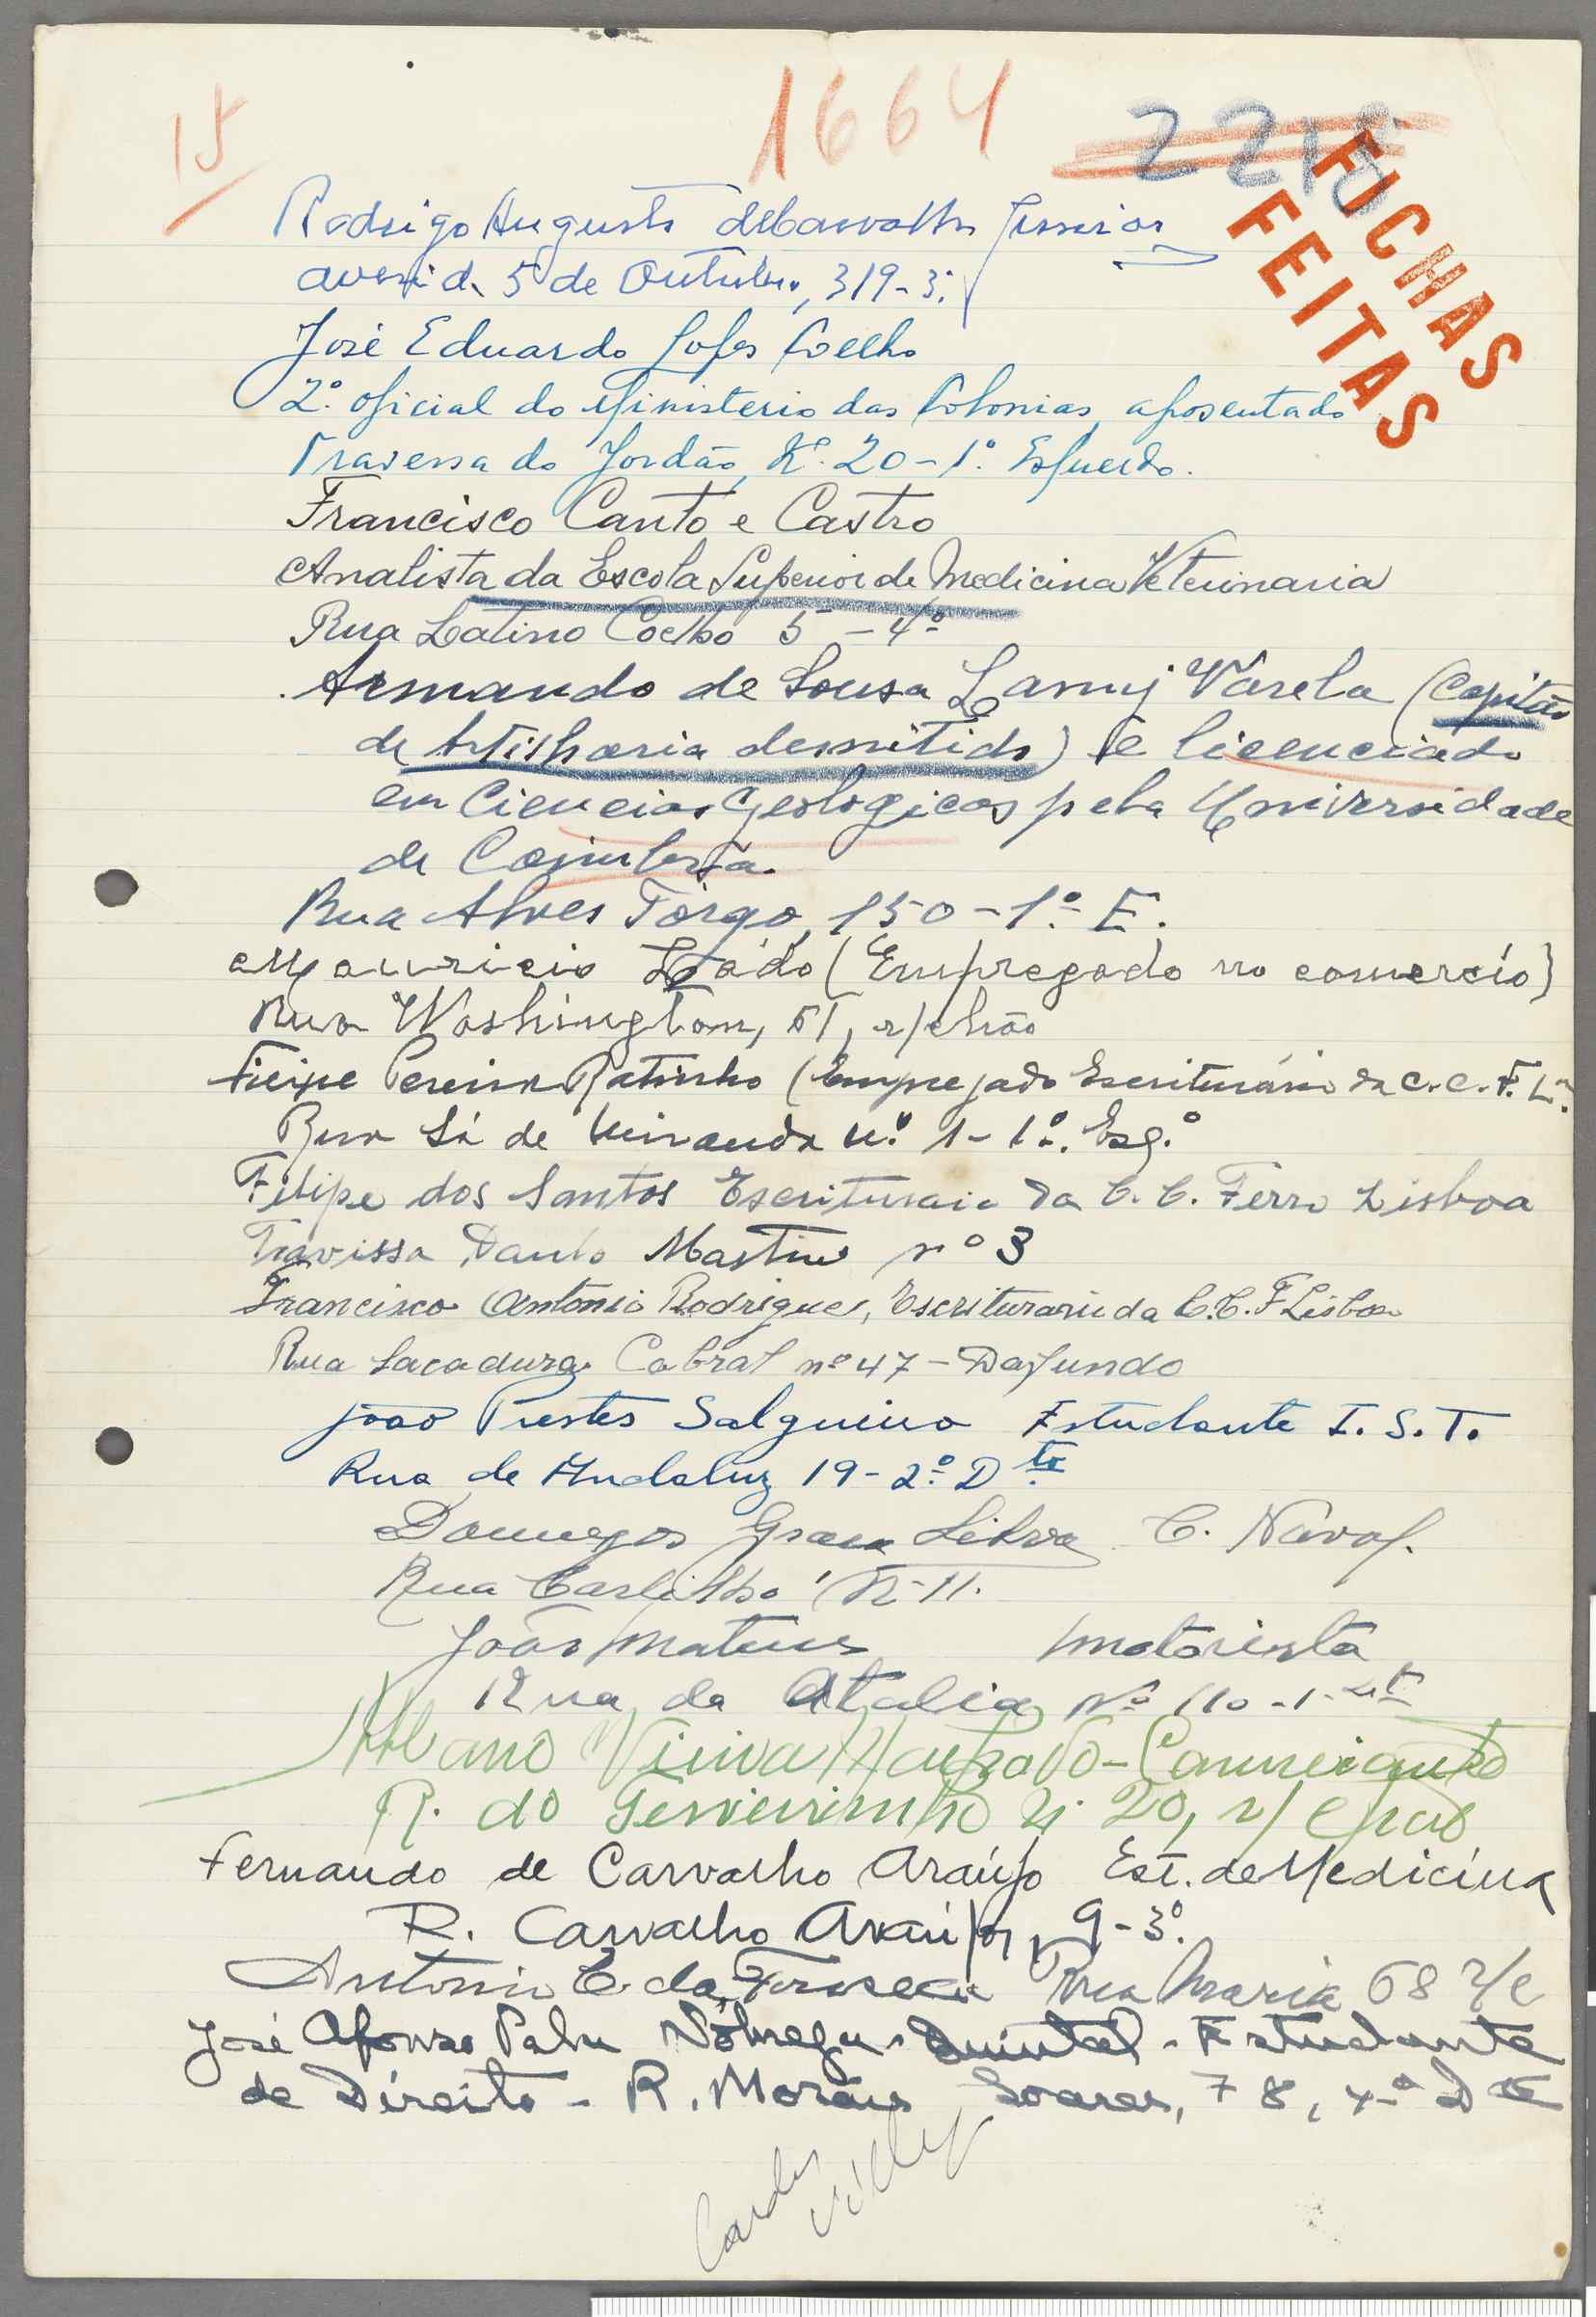 15
1664
2218
FICHAS
FEITAS
Rodrigo Augusto de Carvalho Junior
avenida 5 de Outubro, 319-3.
José Eduardo Lopes Coelho
2.º oficial do Ministerio das Colonias, aposentado
Travessa do Jordão, Nº. 20-1.º Esquerdo.
Francisco Canto e Castro
Analista da Escola Superior de Medicina Veterinaria
Rua Latino Coelho 5 - 4º
Armando de Sousa Larcuj Varela (Capitão
de Artilharia demitido) e licenciado
em Ciencias Geologicas pela Universidade
de Coimbra.
Rua Alves Torgo, 150-1º E.
Mauricio (Empregado no comercio)
Rua Washington, 61, r/chão
Filipe Pereira Ratinho (Empregado Escriturário da C.C.F.L.ª
Rua Sá de Miranda n.º 1-1º. Esq.º
Filipe dos Santos Escriturario da C.C. Ferro Lisboa
Travessa Paulo Martins nº 3
Francisco Antonio Rodrigues, Escriturario da C.C.F Lisboa
Rua Sacadura Cabral nº 47 - Dafundo
João Prestes Salgueiro Estudante I.S.T.
Rua de Andaluz 19-2º D.to
Domingos Silva C. Naval.
Rua 11.
João Mateus motorista
Rua da Atalia Nº 110-1-
Albano Vieira - Comerciante
R. do Ferreirinho Nº 20, r/chão
Fernando de Carvalho Araújo Est. de Medicina
R. Carvalho Araújo, 9-3º.
Antonio C. da Fonseca Rua Maria 68 r/c
José Afonso Palu Nóbrega Quintal - Estudante
de Direito - R. Morais Soares, 78, 4º Dte
Carlos